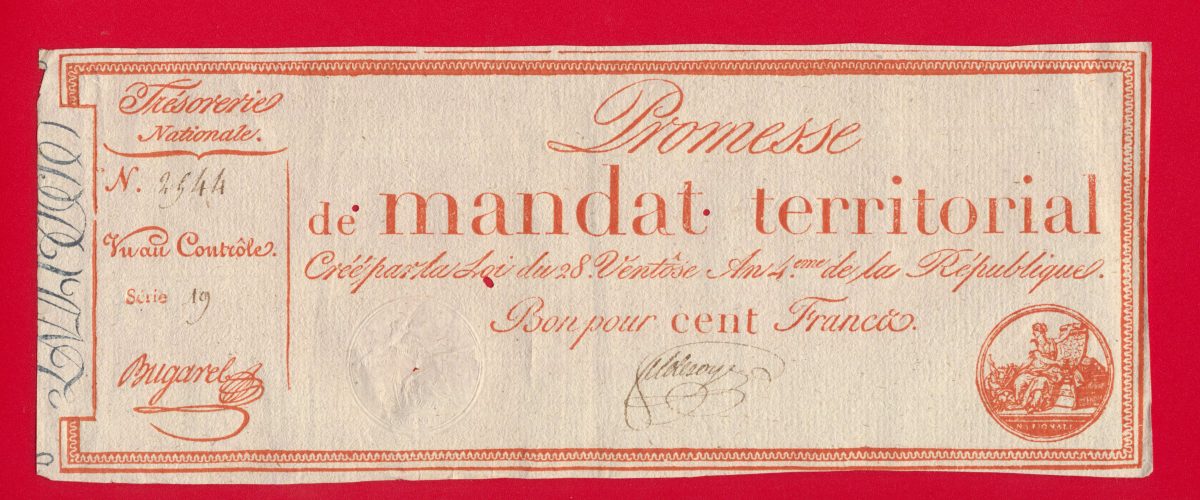 Trésorerie
Nationale.
N. 2944
Vu au Contrôle.
Série 19
Bugarel
Promesse
de mandat territorial
Créé par la Loi du 28 Ventôse An 4.eme de la République.
Bon pour cent Francs.
NATIONALE